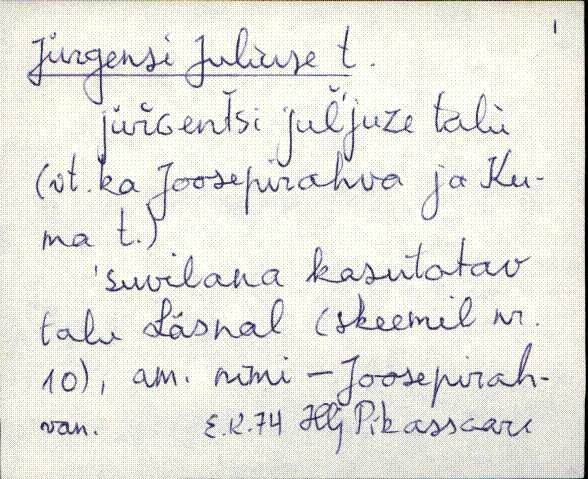 1
Jürgensi Juliuse t.
jüřGentši juĺjuze talu
(vt. ka Joosepirahva ja Ku-
ma t.)
suvilana kasutatav
talu Läsnal (skeemil nr.
10), am. nimi – Joosepirah-
van. E.K.74 Hlj Pikassaare